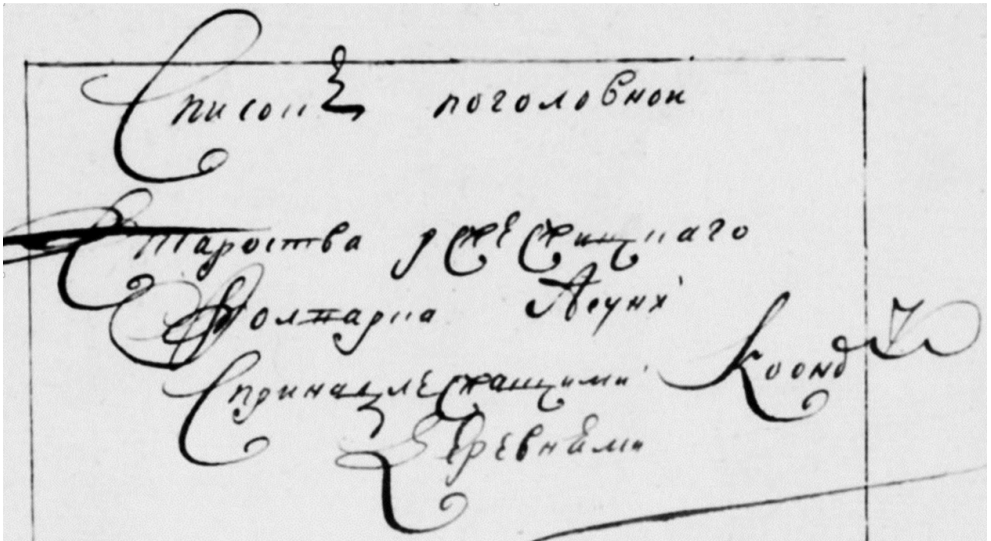 Списокъ поголовнои
Староства режицкаго
Фольварка
Спринадлежащими Кооной
деревнями